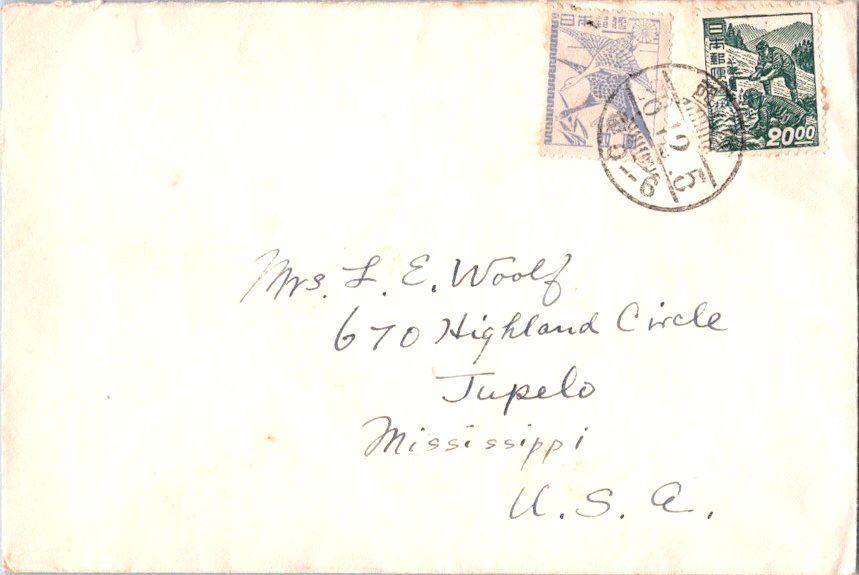 日本郵便
日本郵便
20.00
12.5
Mrs. L. E. Woolf
670 Highland Circle
Tupelo
Mississippi
U. S. A.